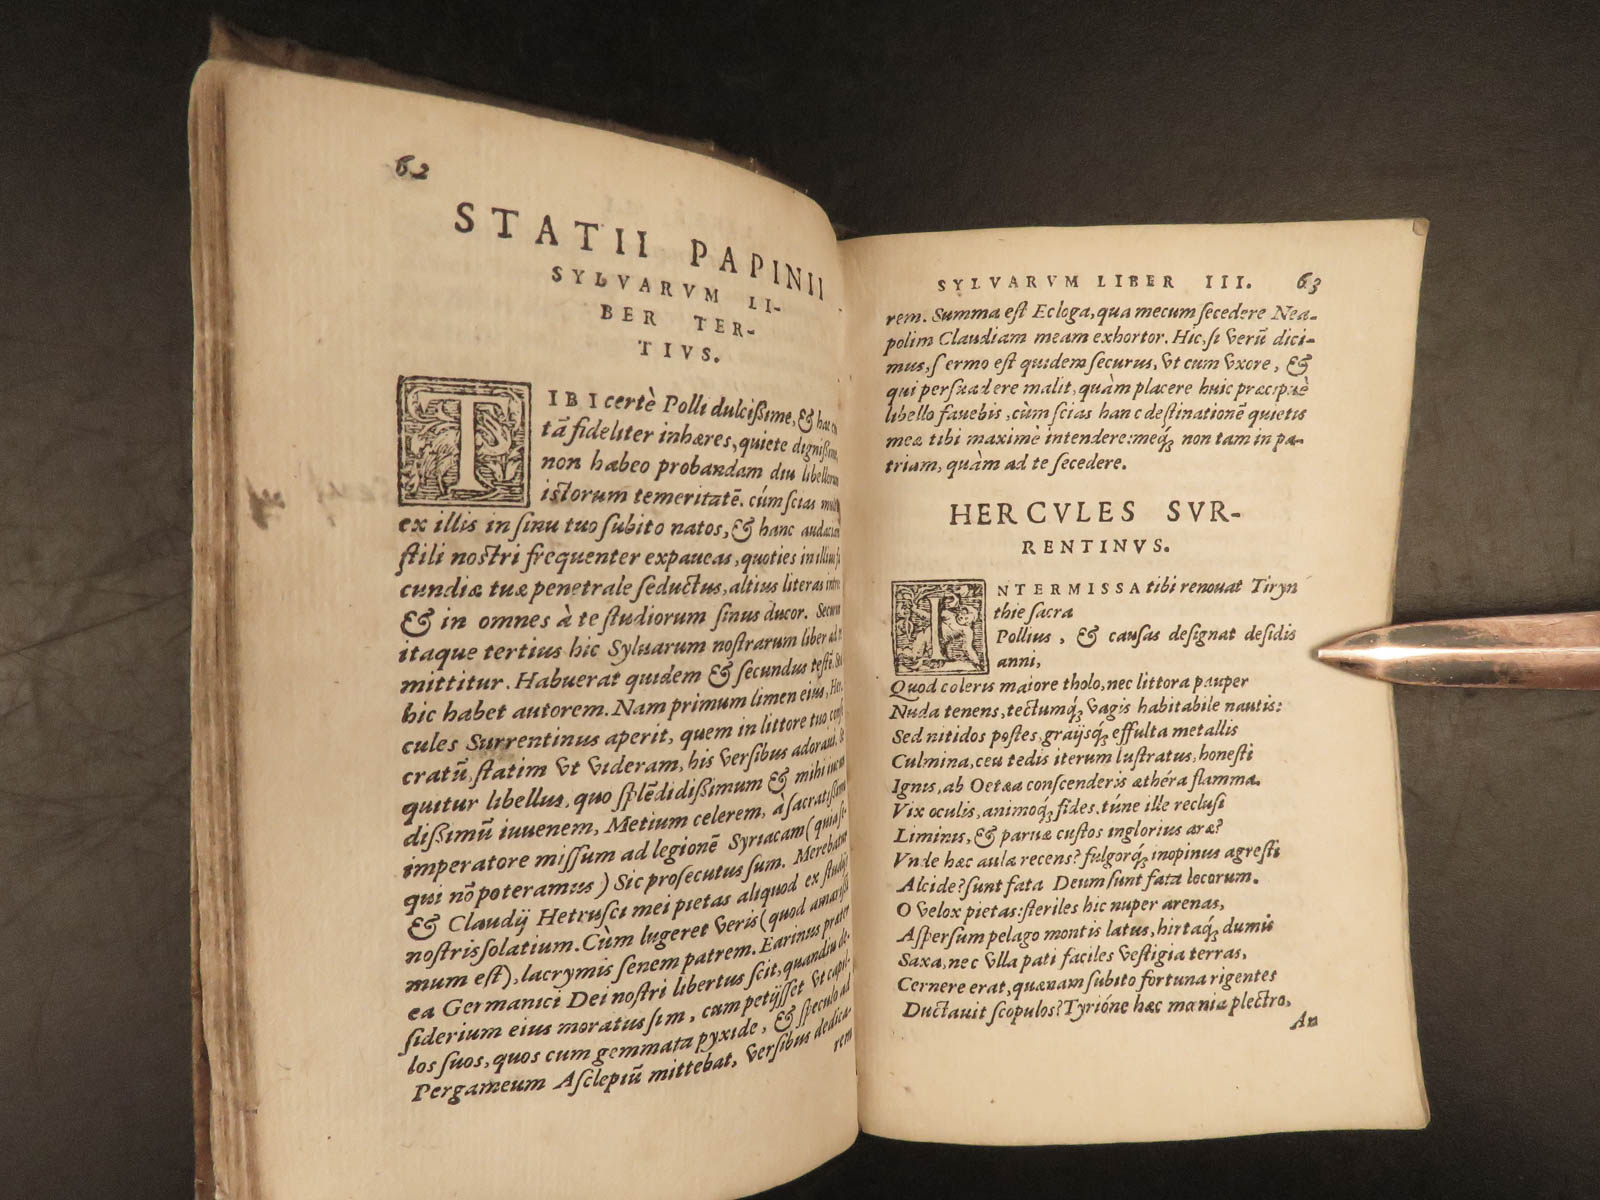 62
STATII PAPINII
SYLVARVM LI-
BER TER-
TIVS.
TIBI certè Polli dulcißime, & hac
tã fideliter inhæres, quiete dignißime,
non habeo probandam diu libellorum
istorum temeritatẽ. cúm scias
ex illis in sinu tuo subito natos, & hanc audaciam
stili nostri frequenter expaueas, quoties in illius
cundiæ tuæ penetrale seductus, altius literas intro
& in omnes à te studiorum sinus ducor. Securus
itaque tertius hic Syluarum nostrarum liber ad
mittitur. Habuerat quidem & secundus testẽ.
hic habet autorem. Nam primum limen eius, Her-
cules Surrentinus aperit, quem in littore tuo
cratũ, statim vt videram, his versibus adoraui.
quitur libellus, quo splẽdidißimum & mihi
dißimũ iuuenem, Metium celerem, à sacratißimo
imperatore missum ad legionẽ Syriacam (quia se-
qui nõ poteramus) Sic prosecutus sum. Merebatur
& Claudij Hetrusci mei pietas aliquod ex studijs
nostris solatium. Cùm lugeret veris (quod amarißi
mum est), lacrymis senem patrem. Earinus præter
ea Germanici Dei nostri libertus scit, quandiu de-
siderium eius moratus sim, cum petijsset vt capil-
los suos, quos cum gemmata pyxide, & speculo ad
Pergameum Asclepiũ mittebat, versibus dedica-
rem
SYLVARVM LIBER III. 63
rem. Summa est Ecloga, qua mecum secedere Nea-
polim Claudiam meam exhortor. Hic, si verũ dici-
mus, sermo est quidem securus, vt cum vxore, &
qui persuadere malit, quàm placere huic præcipuè
libello fauebis, cùm scias hanc destinationẽ quietis
meæ tibi maximè intendere: meq́; non tam in pa-
triam, quàm ad te secedere.
HERCVLES SVR-
RENTINVS.
INTERMISSA tibi renouat Tiryn
thie sacra
Pollius, & causas designat desidis
anni,
Quod coleris maiore tholo, nec littora pauper
Nuda tenens, tectumq́; vagis habitabile nautis:
Sed nitidos postes, graijsq́; effulta metallis
Culmina, ceu tedis iterum lustratus, honesti
Ignis, ab Oetæa conscenderis æthéra flamma.
Vix oculis, animoq́; fides. túne ille reclusi
Liminis, & paruæ custos inglorius aræ?
Vnde hæc aula recens? fulgorq́; inopinus agresti
Alcide? sunt fata Deum sunt fata locorum.
O velox pietas: steriles hic nuper arenas,
Aspersum pelago montis latus, hirtaq́; dumis
Saxa, nec vlla pati faciles vestigia terras,
Cernere erat, quænam subito fortuna rigentes
Ductauit scopulos? Tyrióne hæc mœnia plectro,
An